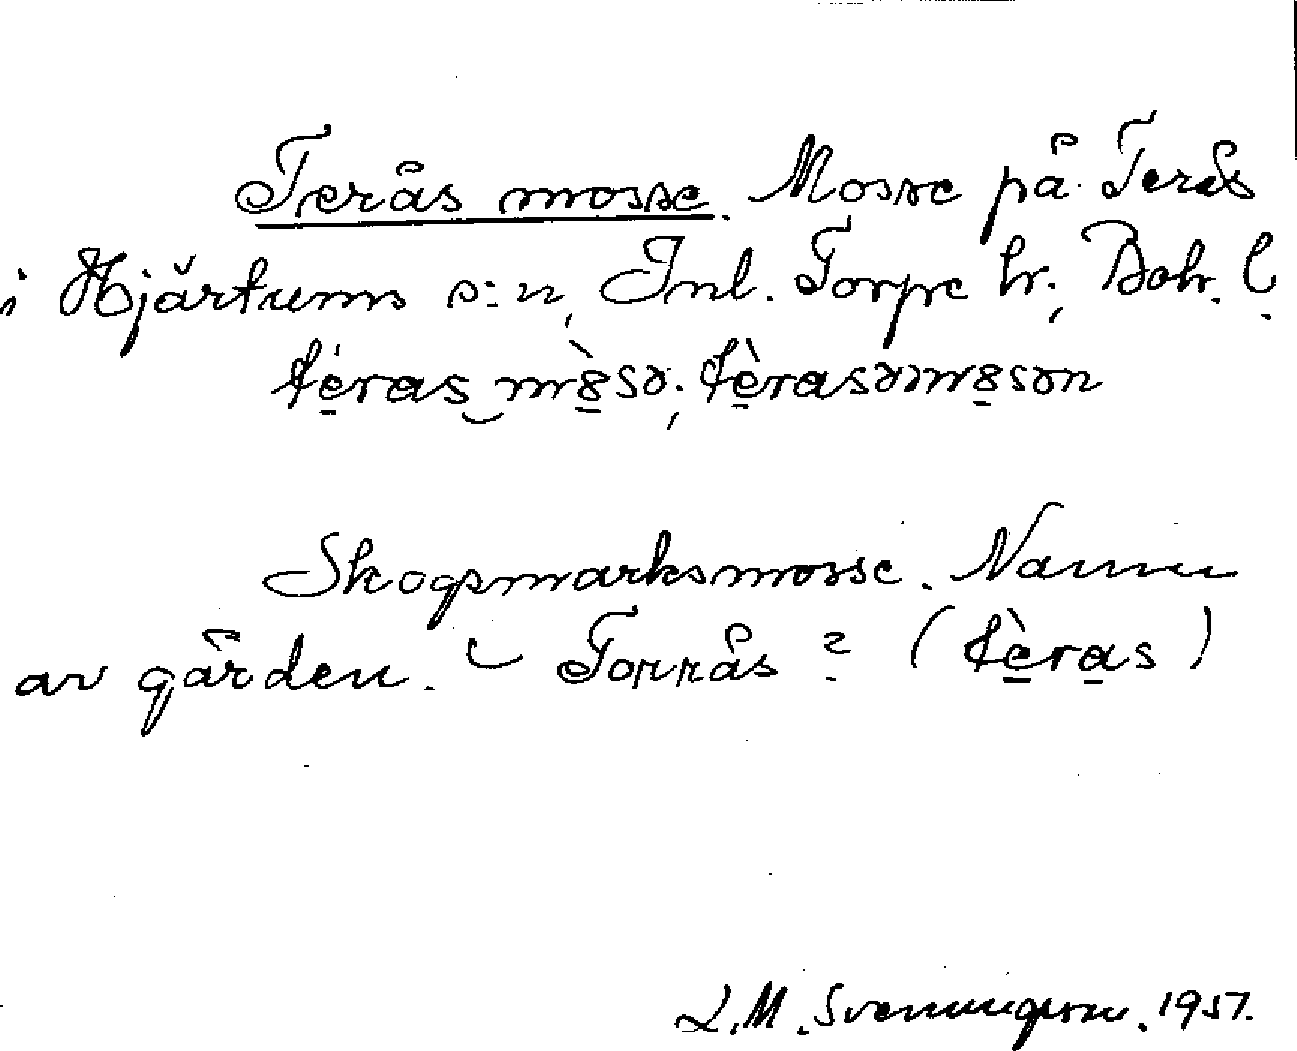 Terås mosse. Mosse på Terås
i Hjärtums s:n, Inl. Torpe hr., Boh. l.
tèras mòsə; tèrasəmosən
Skogsmarksmosse. Namn
av gården. Torrås? (tèras)
L.M. Svenungsson. 1957.